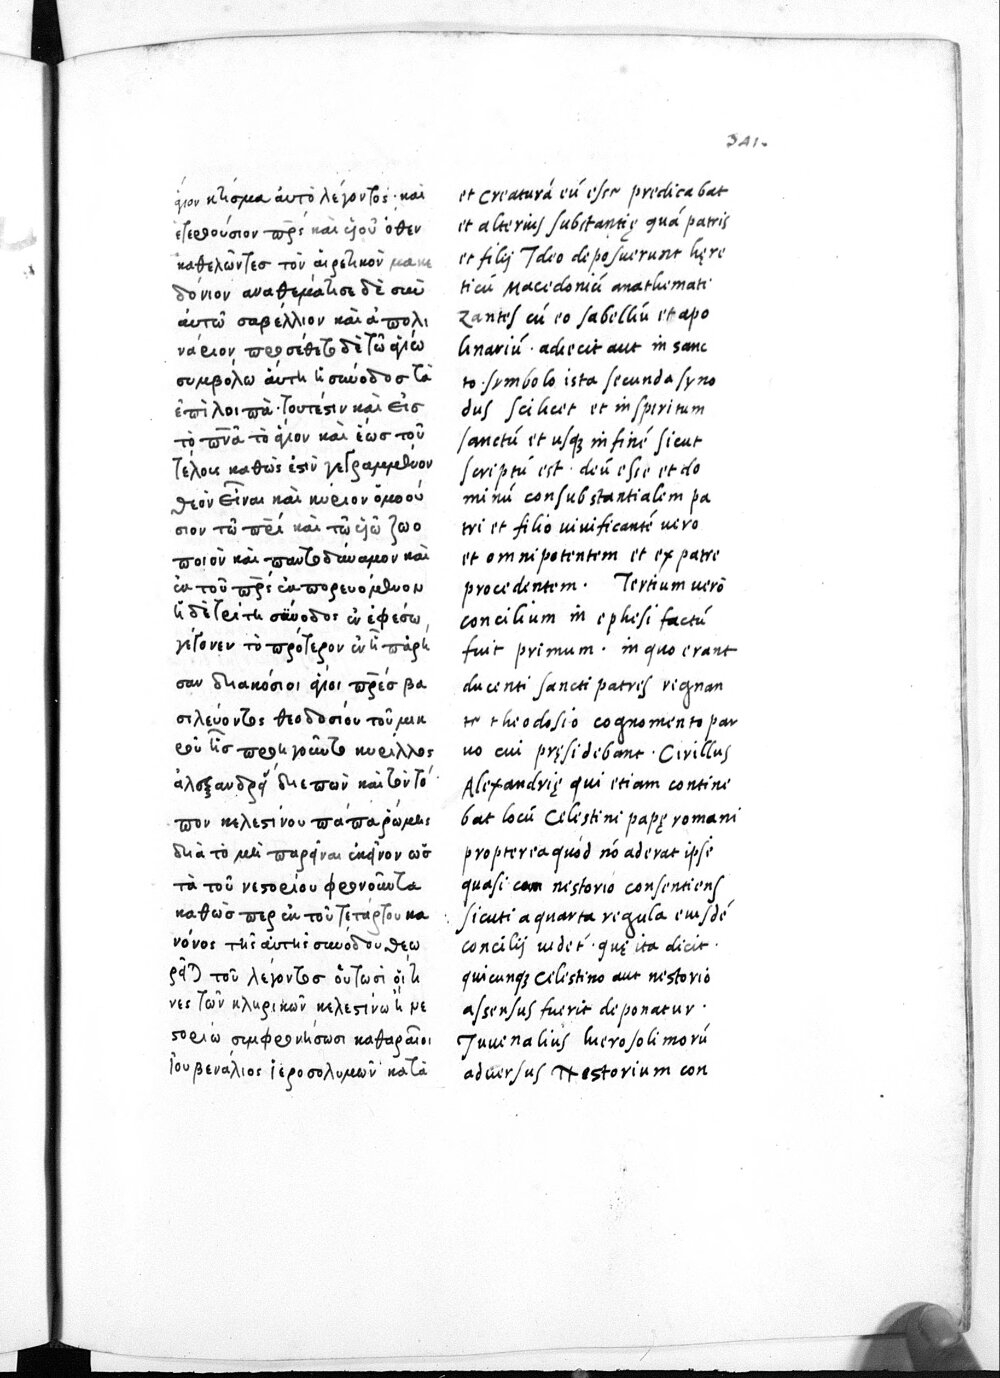 341.
ἅγιον κτίσμα αὐτὸ λέγοντος· καὶ
ἑτερούσιον πρ̅ς καὶ υἱοῦ ὅθεν
καθελῶντες τὸν αἱρετικὸν μακε
δόνιον αναθεμάτισε δὲ σὺν
αὐτῶ σαβέλλιον καὶ ἀπολι
νάριον προσέθετο δὲ τῶ ἁγίω
συμβόλω ἁύτη ἡ σύνοδος τὰ
ἐπίλοιπα· τουτέστιν καὶ εἰς
τὸ πν̅α τὸ ἅγιον καὶ ἑώς τοῦ
τέλους καθὼς ἐστὶν γεγραμμένον
θεὸν εἶναι καὶ κύριον ὁμοού
σιον τῶ πρ̅ὶ καὶ τῶ υἱῶ ζωο
ποιὸν καὶ παντοδύναμον καὶ
ἐκ τοῦ πρ̅ς ἐκπορευόμενον
ἡ δὲ τρίτη σύνοδος ἐν ἐφέσω
γέγονεν τὸ πρότερον ἐν ἧ πάρη
σαν διακόσιοι ἅγιοι πρ̅ές βα
σιλεύοντος θεοδοσίου τοῦ μικ
ροῦ ἧς προηγοῦντο κυρίλλος
ἀλεξανδρείας διεπῶν καὶ τὸν τό
πον κελεστίνου πάπα ῥώμης
διὰ τὸ μὴ παρεῖναι ἐκεῖνον ὡς
τὰ τοῦ νεστορίου φρονοῦντα
καθὼς περ ἐκ τοῦ τετάρτου κα
νόνος τῆς ἀυτῆς συνόδου θεω
ρεῖται τοῦ λέγοντος οὕτωσὶ ὁίτι
νες τῶν κληρικῶν κελεστίνω ἢ νε
στορίω συμφρονήσωσι καθαραῖσι
ἰουβενάλιος ἱεροσολυμῶν κατὰ
et Creaturá eú esse predicabat
et alterius substantię quá patris
et filij Ideo deposuerunt hęre
ticú Macedoniú anathemati
zantes cú eo sabelliú et apo
linariú · adiecit aut in sanc
to · symbolo ista secunda syno
dus scilicet et in spiritum
sanctú et usqȝ in finé sicut
scriptú est · deú esse et do
minú consubstantialem pa
tri et filio uiuificanté uero
et omnipotentem et ex patre
procedentem · Tertium uerō
concilium in ephesi factú
fuit primum · in quo erant
ducenti sancti patres regnan
te theodosio cognomento par
uo cui pręsidebant · Cirillus
Alexandrię qui etiam contine
bat locú Celestini papę romani
propterea quód nó aderat ipse
quasi cum nestorio consentiens
sicuti a quarta regula eiusdé
concilij uidet́ · quę ita dicit ·
quicunqȝ Celestino aut nestorio
assensus fuerit deponatur ·
Juuenalius hierosolimorú
aduersus Nestorium con